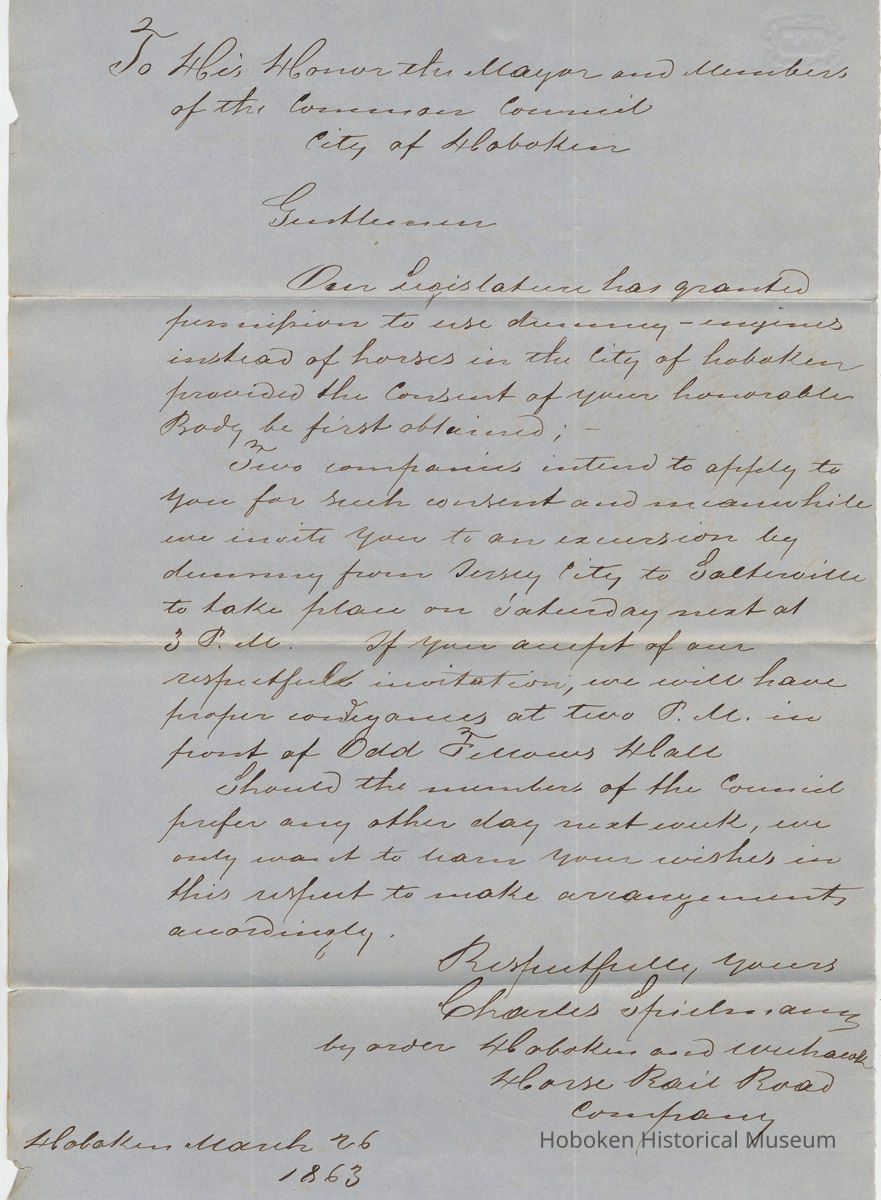 To His Honor the Mayor and Members
of the Common Council
City of Hoboken
Gentlemen
Our Legislature has granted
permission to use dummy-engines
instead of horses in the City of hoboken
provided the Consent of your honorable
Body be first obtained; -
Two companies intend to apply to
you for such consent and meanwhile
we invite you to an excursion by
dummy from Jersey City to Salterville
to take place on Saturday next at
3 P.M. If you accept of our
respectfull invitation, we will have
proper conveyances at two P.M. in
front of Odd Fellows Hall
Should the members of the Council
prefer any other day next week, we
only want to learn your wishes in
this respect to make arrangements
accordingly.
Respectfully, yours
Charles Spielmann
by order Hoboken and Weehawk
Horse Rail Road
Company
Hoboken March 26
1863
Hoboken Historical Museum